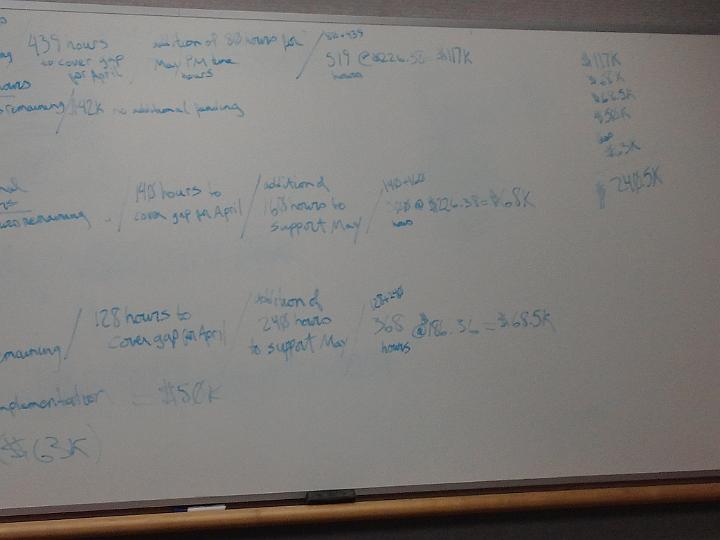 439 hours
to cover gap
for April
addition of 80 hours for
May PM time
hours
80+439
519 @ $226.38 = $117K
hours
remaining / $42K no additional funding
remaining
/ 140 hours to
cover gap for April
/ addition of
160 hours to
support May
/ 140+160
@ $226.38 = $68K
hours
remaining
/ 128 hours to
cover gap for April
/ addition of
240 hours
to support May
/ 128+240
368 @ $186.36 = $68.5K
hours
implementation = $50K
($63K)
$117K
$68K
$68.5K
$50K
$63K
$240.5K